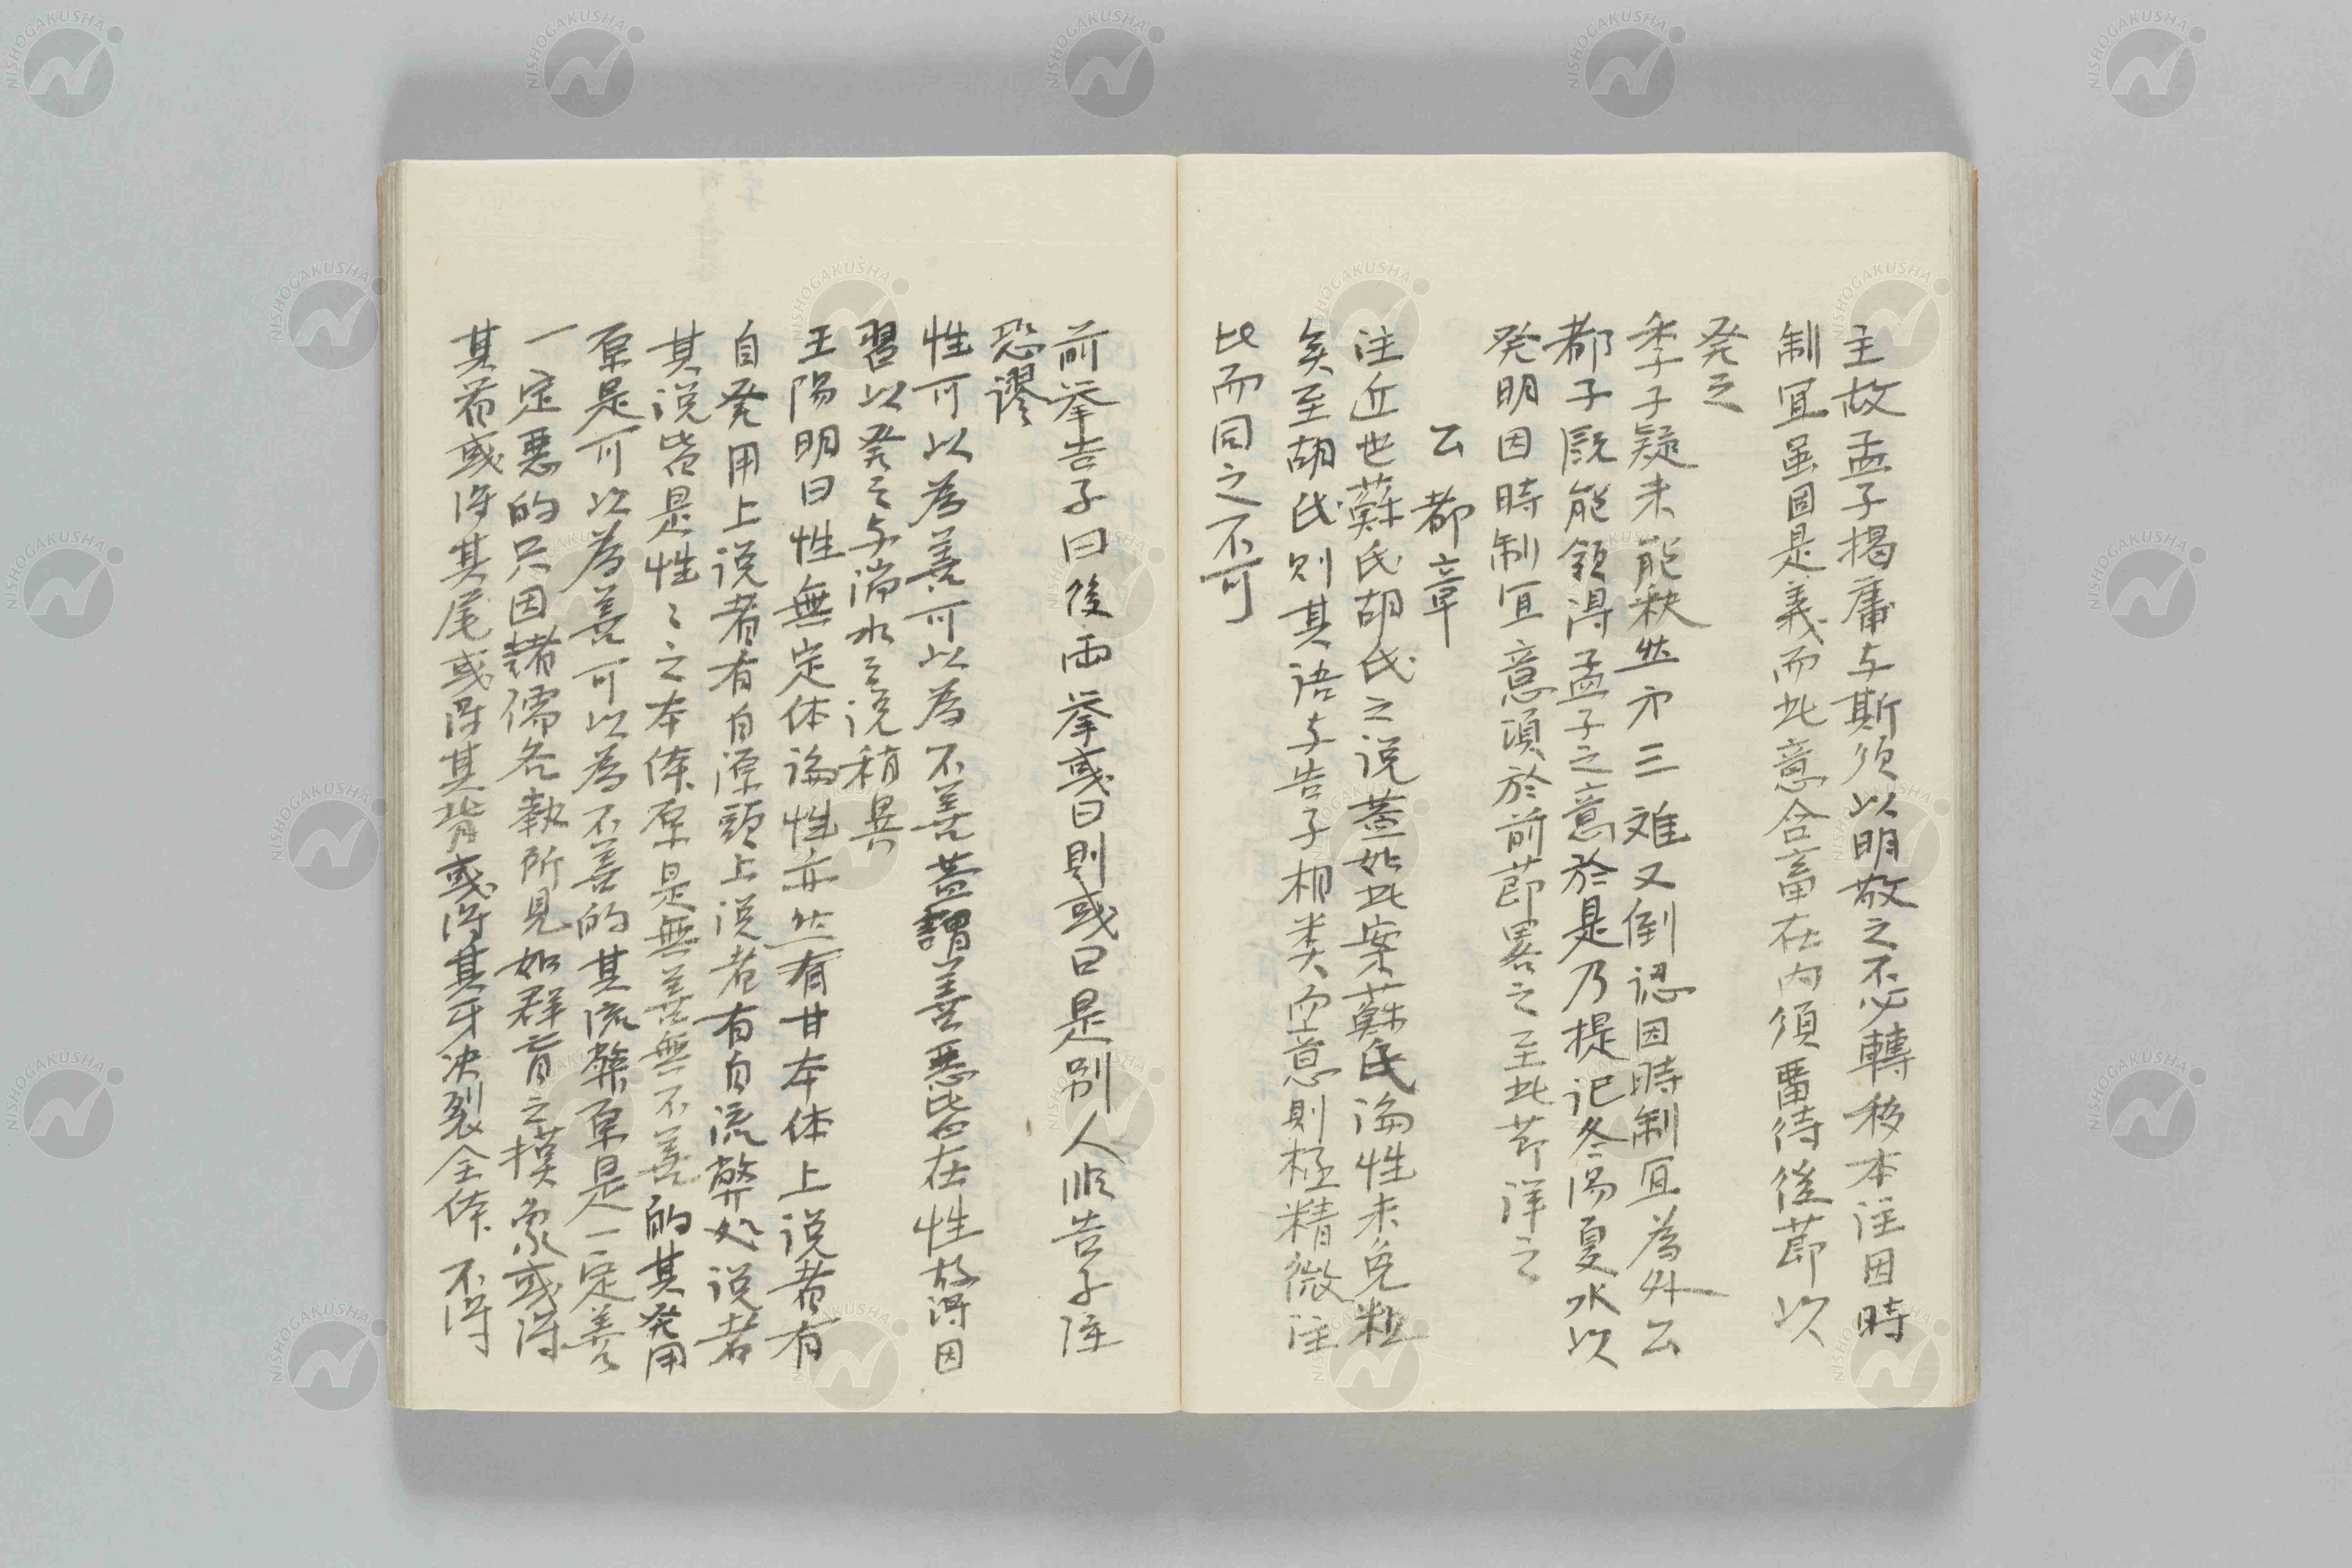 主故孟子掲庸与斯須以明敬之不必轉移本注因時
制宜虽固是義而此意含畜在内須畱待後節以
発之
季子疑未能釈然才三难又倒認因時制宜為外公
都子既能領得孟子之意於是乃提記冬湯夏水以
発明因時制宜意須於前節畧之至此節详之
公都章
注近世蘇氏胡氏之说蓋如此案蘇氏論性未免粗
矣至胡氏则其语与告子相类而意則極精微注
比而同之不可
前挙告子曰後両挙或曰則或曰是别人师告子注
恐謬
性可以為善可以為不善蓋謂善悪皆在性故得因
習以発之与湍水之说稍異
王陽明曰性無定体論性亦然有甘本体上说者有
自発用上说者有自源頭上说者有自流弊处说者
其说皆是性之之本体原是無善無不善的其発用
原是可以為善可以為不善的其流弊原是一定善
一定悪的只因諸儒各執所見如群盲之摸象或得
其首或得其尾或得其背或得其牙决裂全体不得